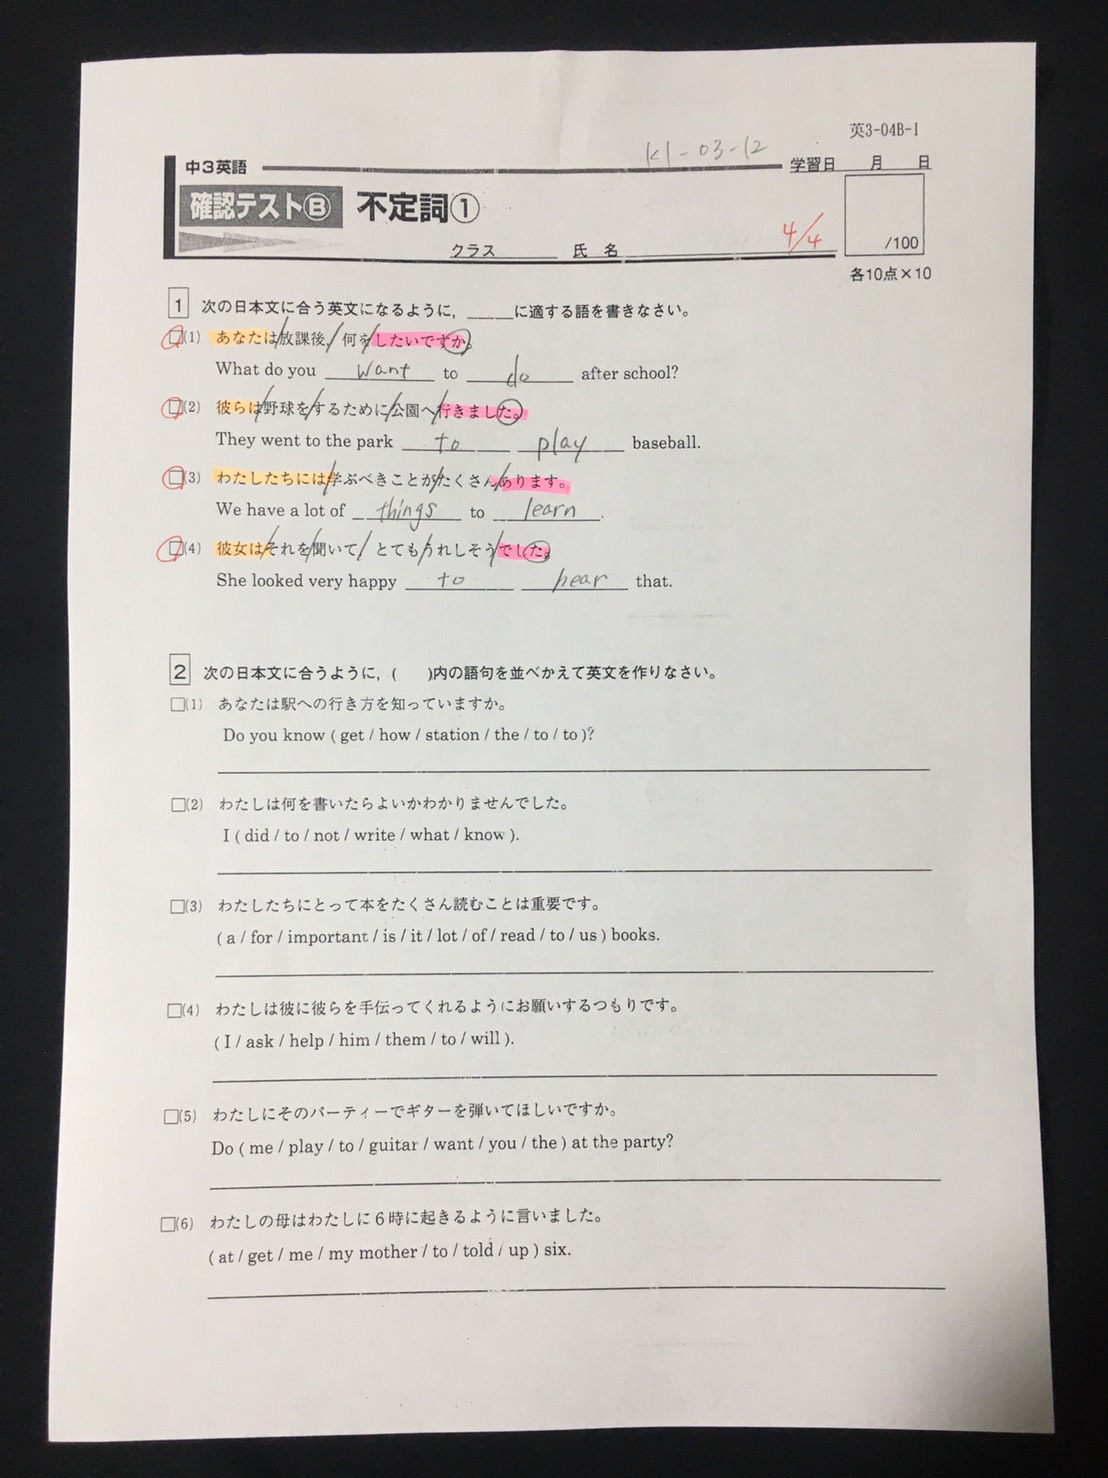 英3-04B-1
K1-03-12
中3英語
学習日 月 日
確認テストⒷ 不定詞①
クラス 氏名
4/4
/100
各10点×10
1 次の日本文に合う英文になるように，____に適する語を書きなさい。
□(1) あなたは/放課後,/何を/したいですか。
What do you want to do after school?
□(2) 彼らは/野球を/するために/公園へ/行きました。
They went to the park to play baseball.
□(3) わたしたちには/学ぶべきことが/たくさん/あります。
We have a lot of things to learn.
□(4) 彼女は/それを/聞いて/とても/うれしそう/でした。
She looked very happy to hear that.
2 次の日本文に合うように，(　　)内の語句を並べかえて英文を作りなさい。
□(1) あなたは駅への行き方を知っていますか。
Do you know ( get / how / station / the / to / to )?
□(2) わたしは何を書いたらよいかわかりませんでした。
I ( did / to / not / write / what / know ).
□(3) わたしたちにとって本をたくさん読むことは重要です。
( a / for / important / is / it / lot / of / read / to / us ) books.
□(4) わたしは彼に彼らを手伝ってくれるようにお願いするつもりです。
( I / ask / help / him / them / to / will ).
□(5) わたしにそのパーティーでギターを弾いてほしいですか。
Do ( me / play / to / guitar / want / you / the ) at the party?
□(6) わたしの母はわたしに6時に起きるように言いました。
( at / get / me / my mother / to / told / up ) six.